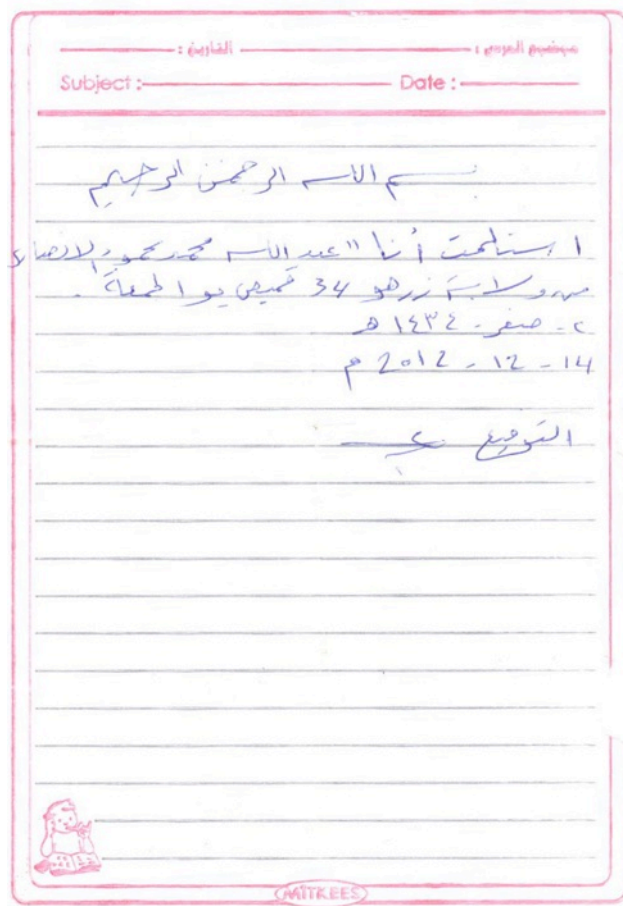 موضوع الدرس : التاريخ :
Subject : Date :
بسم الله الرحمن الرحيم
استلمت أنا "عبد الله محمد محمود الانصاري
من ولاية زرهو 34 قميص
٢ - صفر - ١٤٣٤ هـ
14 - 12 - 2012 م
التوقيع
MITKEES